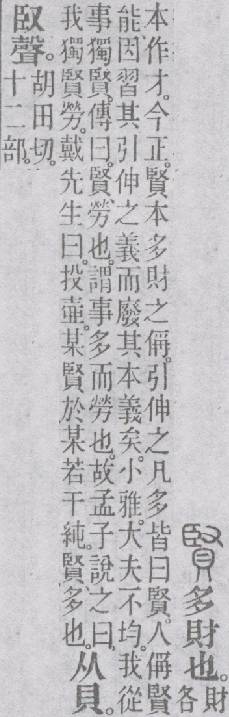 賢多財也。財各
本作才。今正。賢本多財之偁。引伸之凡多皆曰賢。人偁賢
能因習其引伸之義而廢其本義矣。小雅。大夫不均。我從
事獨賢。傳曰。賢、勞也。謂事多而勞也。故孟子說之曰。
我獨賢勞。戴先生曰。投壺某賢於某若干純。賢、多也。
从貝。
臤聲。胡田切。
十二部。